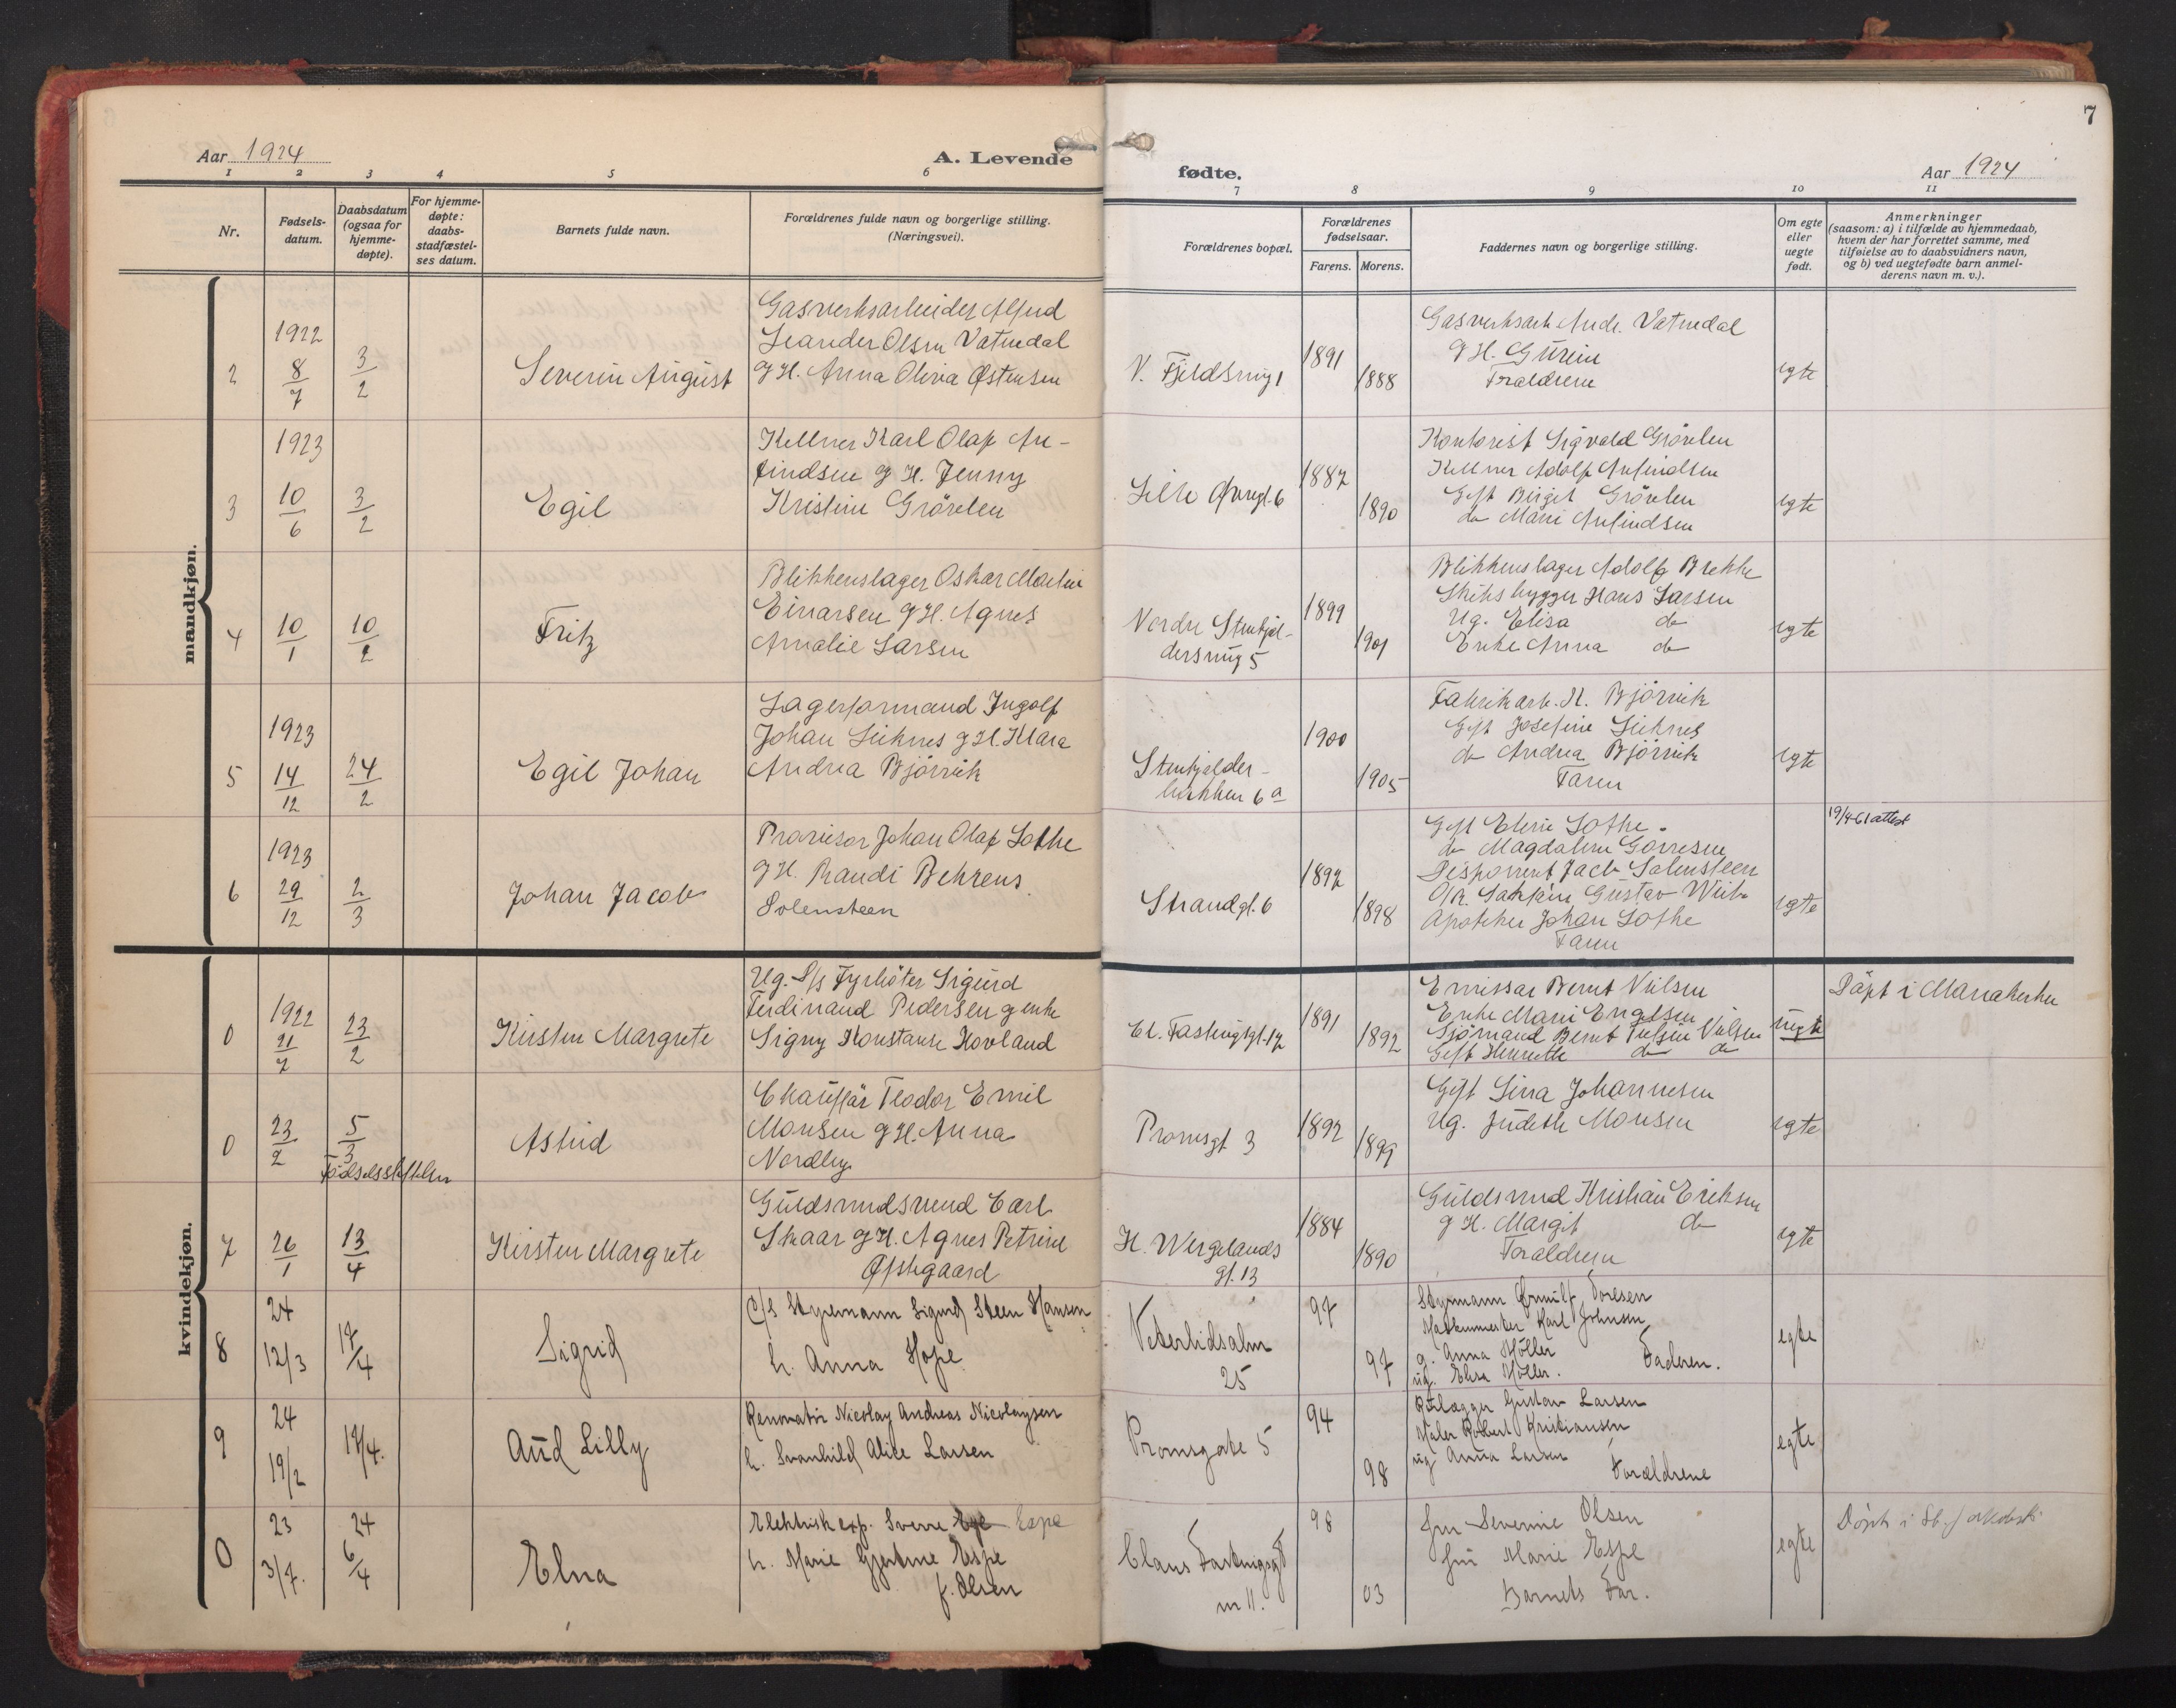 7
Aar 1924
A. Levende
fødte.
Aar 1924
1 2 3 4 5 6 7 8 9 10 11
Nr.
Fødsels-
datum.
Daabsdatum
(ogsaa for
hjemme-
døpte).
For hjemme-
døpte:
daabs-
stadfæstel-
ses datum.
Barnets fulde navn.
Forældrenes fulde navn og borgerlige stilling.
(Næringsvei).
Forældrenes bopæl.
Forældrenes
fødselsaar.
Farens. Morens.
Faddernes navn og borgerlige stilling.
Om egte
eller
uegte
født.
Anmerkninger
(saasom: a) i tilfælde av hjemmedaab,
hvem der har forrettet samme, med
tilføielse av to daabsvidners navn,
og b) ved uegtefødte barn anmel-
derens navn m. v.).
mandkjøn.
2
1922
8/7
3/2
Severin August
Gasverksarbeider Alfred
Leander Olsen Vatnedal
g H. Anna Olivia Østensen
V. Fjeldsmug 1
1891
1888
Gasverksarb. Andr. Vatnedal
g H. Gurine
Forældrene
egte
3
1923
10/6
3/2
Egil
Kellner Karl Olaf An-
findsen g H. Jenny
Kristine Grövlen
Lille Øvregt. 6
1887
1890
Kontorist Sigvald Grövlen
Kellner Adolf Anfindsen
Gift Birgit Grövlen
do Marie Anfindsen
egte
4
10/1
10/2
Fritz
Blikkenslager Oskar Martin
Einarsen g H. Agnes
Amalie Larsen
Nordre Stenkjel-
dersmug 5
1899
1901
Blikkenslager Adolf Brekke
Skibsbygger Hans Larsen
Ug. Elisa do
Enke Anna do
egte
5
1923
14/12
24/2
Egil Johan
Lagerformand Ingolf
Johan Liknes g H. Klara
Andrea Bjørnvik
Stenkjelder-
bakken 6 a
1900
1905
Fabrikarb. N. Bjørnvik
Gift Josefine Liknes
do Andrea Bjørnvik
Faren
egte
6
1923
29/12
2/3
Johan Jacob
Provisor Johan Olaf Lothe
g H. Randi Behrens
Solensteen
Strandgt. 6
1892
1898
Gift Elene Lothe
do Magdalene Gørresen
Disponent Jacb. Solensteen
O.R. Sakfører Gustav Wiib
Apoteker Johan Lothe
Faren
egte
19/4-61 attest
kvindekjøn.
0
1922
21/7
23/2
Kirsten Margrete
Ug. S/s Fyrbøter Sigurd
Ferdinand Pedersen g enke
Signy Konstanse Hovland
Cl. Fastingsgt. 17
1891
1892
Emissær Bernt Nilsen
Enke Marie Engelsen
Sjømand Bernt Nilsen
Gift Henriette do do
uegte
Døpt i Mariakirken
0
23/2
5/3
Fødselsstiftelsen
Astrid
Chauffør Teodor Emil
Monsen g H. Anna
Nordby
Promsgt 3
1892
1899
Gift Lina Johannesen
Ug. Judith Monsen
egte
7
26/1
13/4
Kirsten Margrete
Guldsmedsvend Carl
Skaar g H. Agnes Petrine
Øpstegaard
H. Wergelands
gt. 13
1884
1890
Guldsmed Kristian Eriksen
g H. Margit do
Forældrene
egte
8
24
12/3
17/4
Sigrid
E/S Styrmann Sigurd Steen Hansen
h. Anna Hope
Veterlidsalm
25
97
97
Styrmann Ørnulf Toresen
Maskinmester Karl Johnsen
g. Anna Möller
ug. Elisa Möller. Faderen.
egte
9
24
19/2
19/4.
Aud Lilly
Renovatør Nicolay Andreas Nicolaysen
h. Svanhild Alice Larsen
Promsgate 5
94
98
Rørlægger Gustav Larsen
Maler Robert Kristiansen
ug Anna Larsen
Forældrene
egte
0
23
3/7.
24
6/4
Elna
Elektrisk exp. Sverre Espe
h. Marie Gjertine Espe
f. Olsen
Claus Fastingsgt
nr 11.
98
03
fru Severine Olsen
fru Marie Espe
Barnets Far.
egte
Døpt i St. Jakobsk.